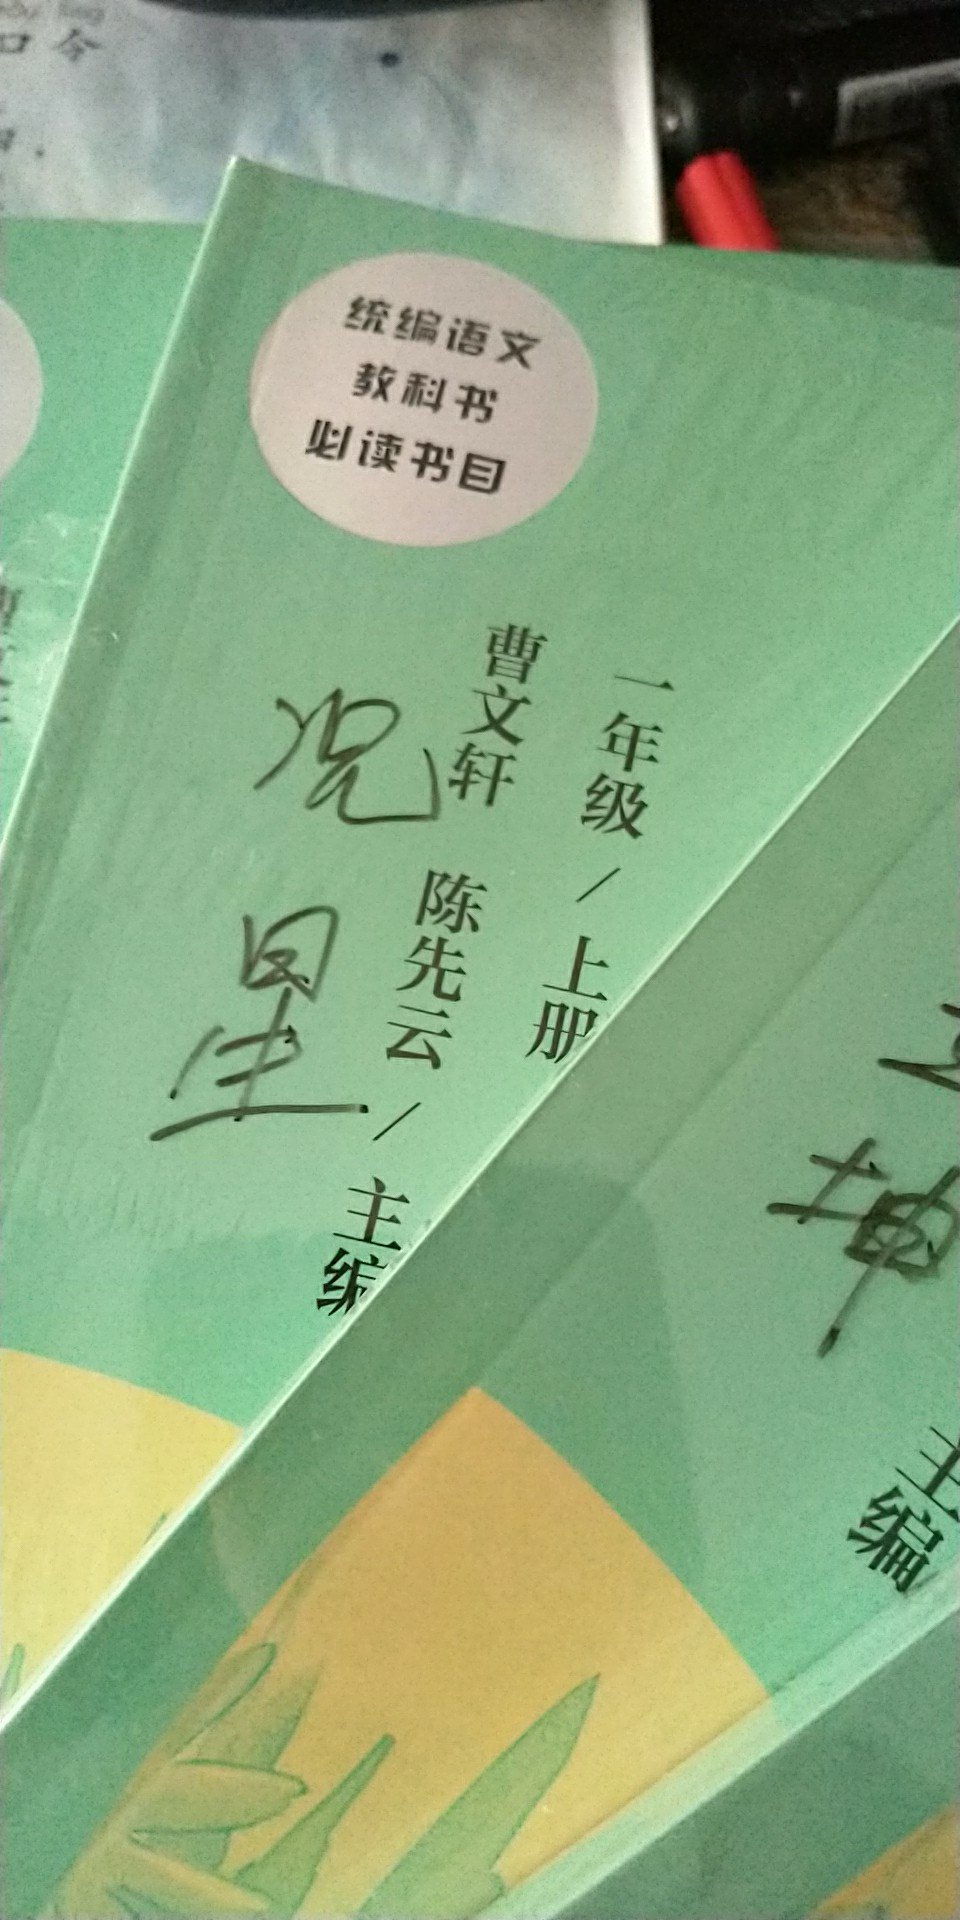 口 令
统编语文
教科书
必读书目
一年级 / 上册
曹文轩 陈先云 / 主编
况
星
坤
主编